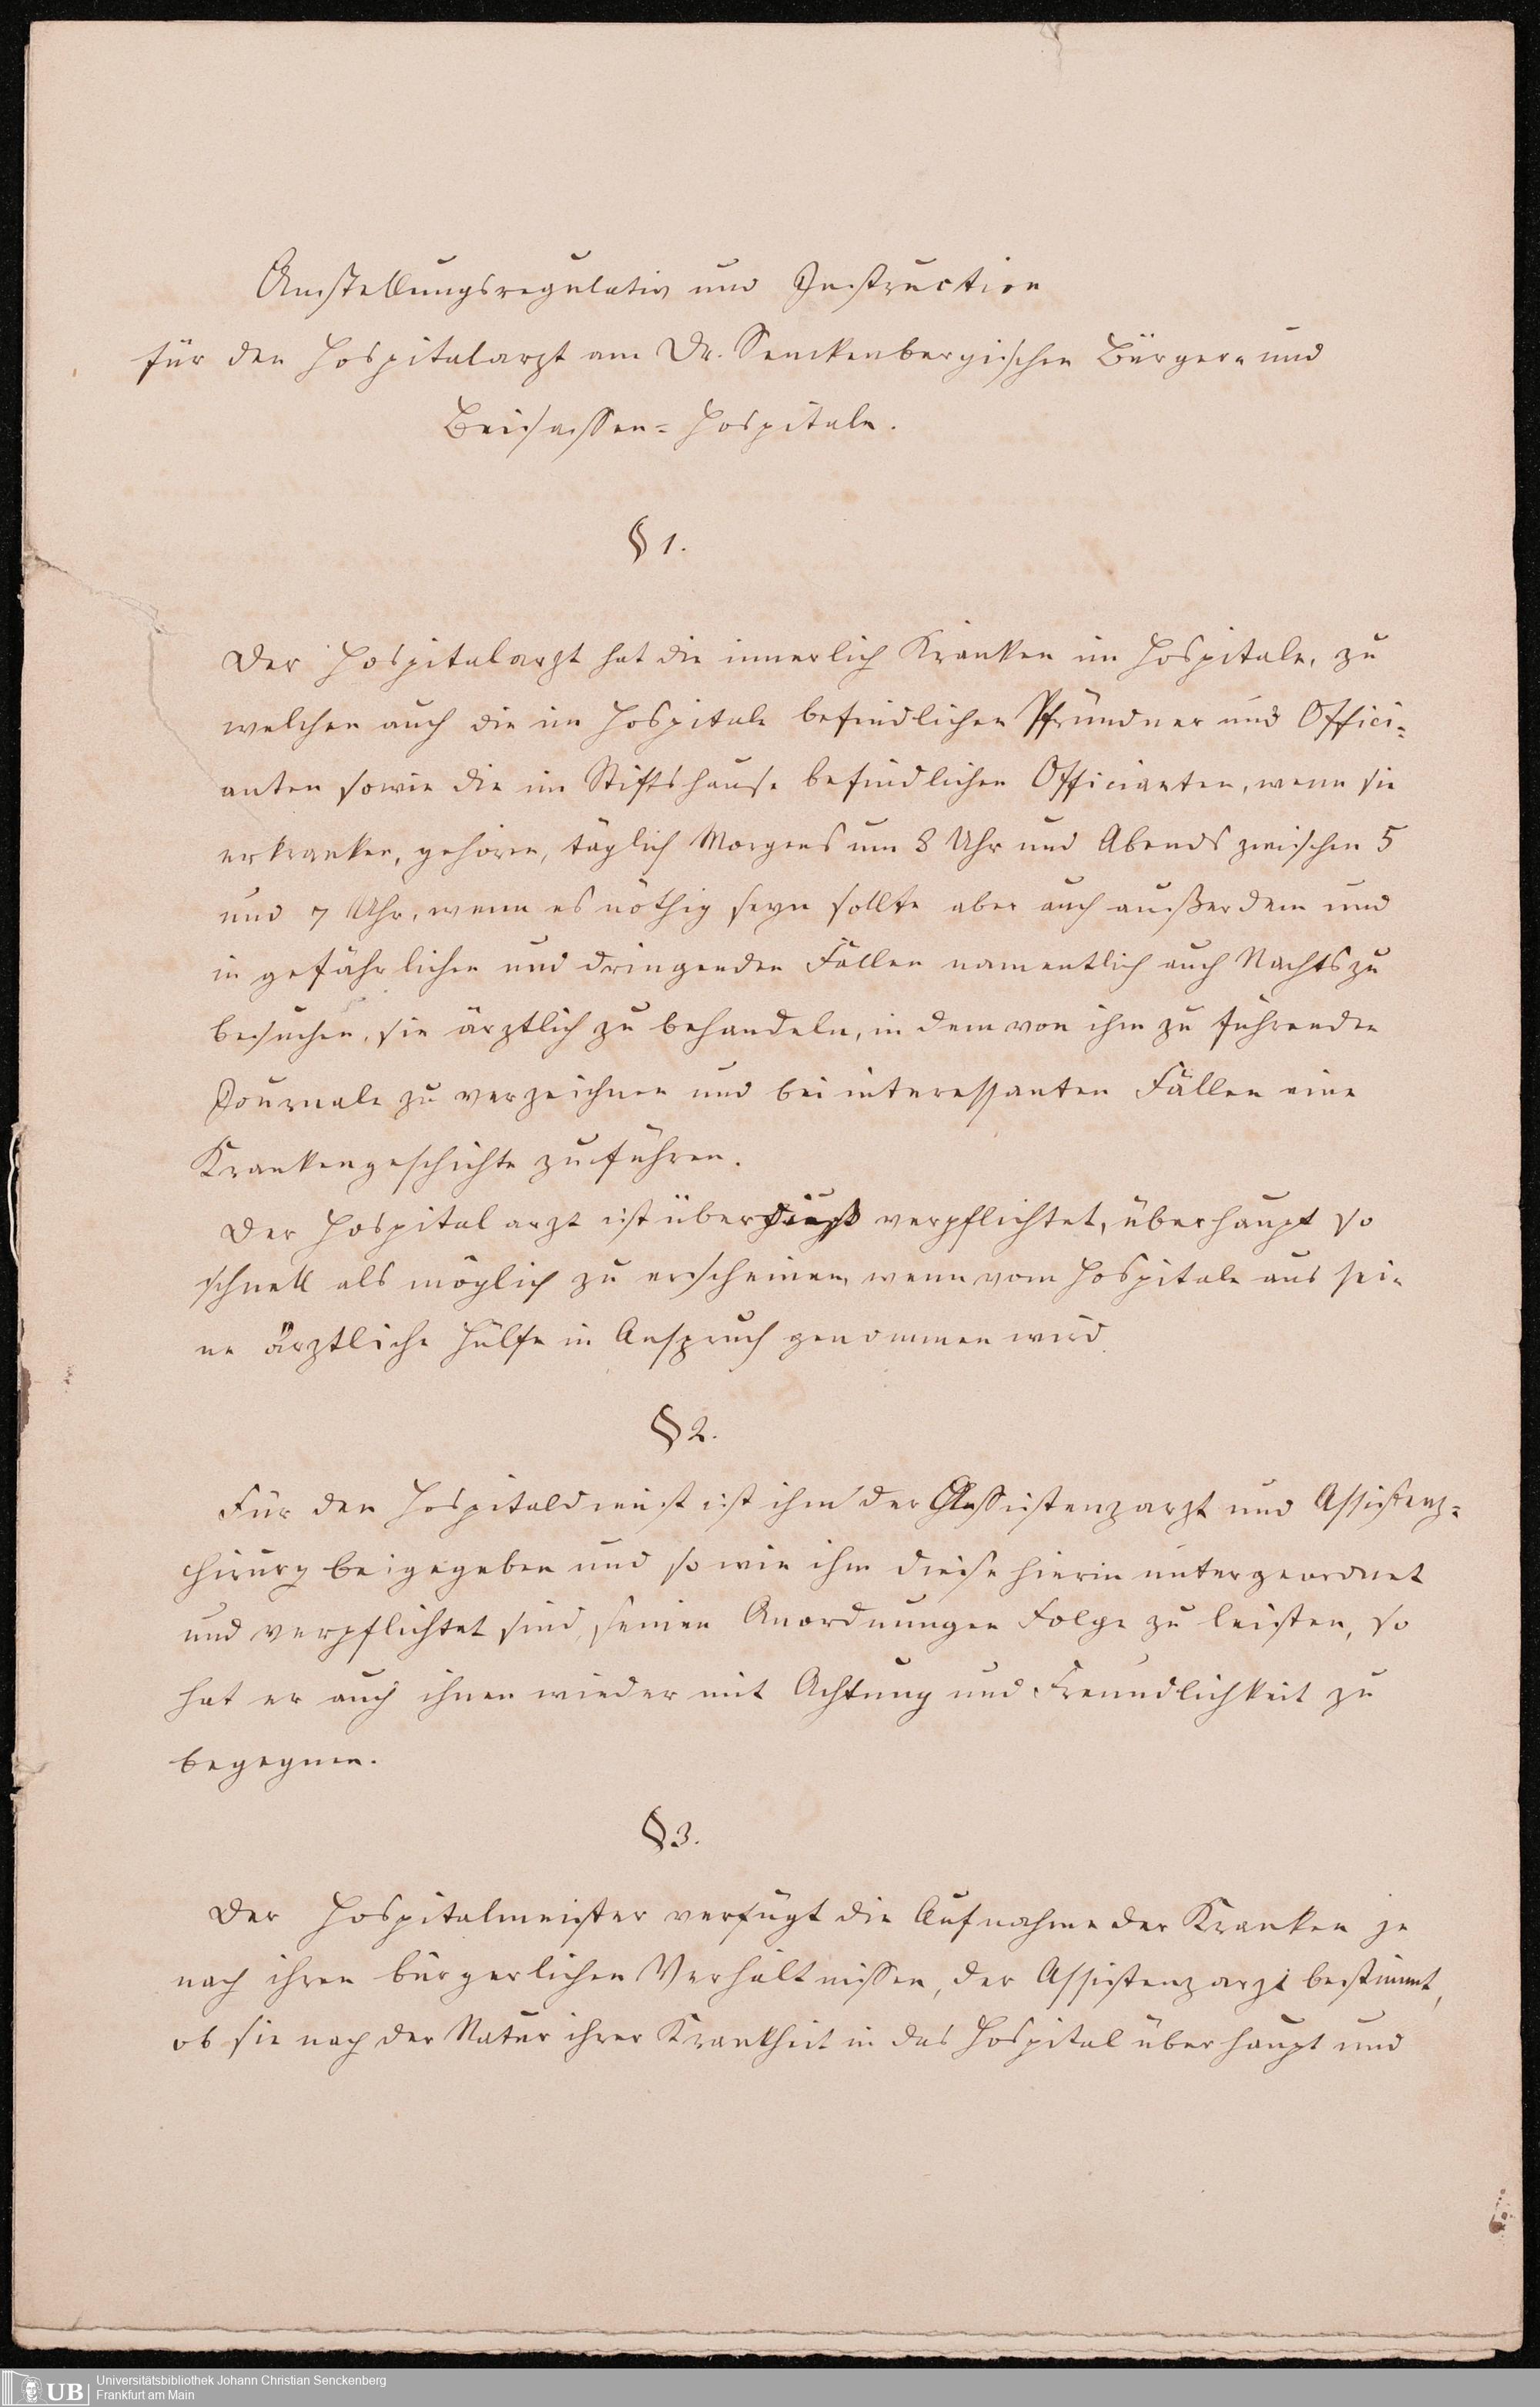 Anstellungsregulativ und Instruction
für den Hospitalarzt am Dr. Senckenbergischen Bürger- und
Beisassen-Hospitale.
§ 1.
Der Hospitalarzt hat die innerlich Kranken im Hospitale, zu
welchen auch die im Hospitale befindlichen Pfründner und Offici-
anten sowie die im Stiftshause befindlichen Officianten, wenn sie
erkranken, gehören, täglich Morgens um 8 Uhr und Abends zwischen 5
und 7 Uhr, wenn es nöthig seyn sollte aber auch außerdem und
in gefährlichen und dringenden Fällen namentlich auch Nachts zu
besuchen, sie ärztlich zu behandeln, in dem von ihm zu führenden
Journale zu verzeichnen und bei interessanten Fällen eine
Krankengeschichte zu führen.
Der Hospitalarzt ist verpflichtet, überhaupt so
schnell als möglich zu erscheinen, wenn vom Hospitale aus sei-
ne ärztliche Hülfe in Anspruch genommen wird.
§ 2.
Für den Hospitaldienst ist ihm der Assistenzarzt und Assistenz-
chirurg beigegeben und so wie ihm diese hierin untergeordnet
und verpflichtet sind, seinen Anordnungen Folge zu leisten, so
hat er auch ihnen wieder mit Achtung und Freundlichkeit zu
begegnen.
§ 3.
Der Hospitalmeister verfügt die Aufnahme der Kranken je
nach ihren bürgerlichen Verhältnissen, der Assistenzarzt bestimmt,
ob sie nach der Natur ihrer Krankheit in das Hospital überhaupt und
UB
Universitätsbibliothek Johann Christian Senckenberg
Frankfurt am Main